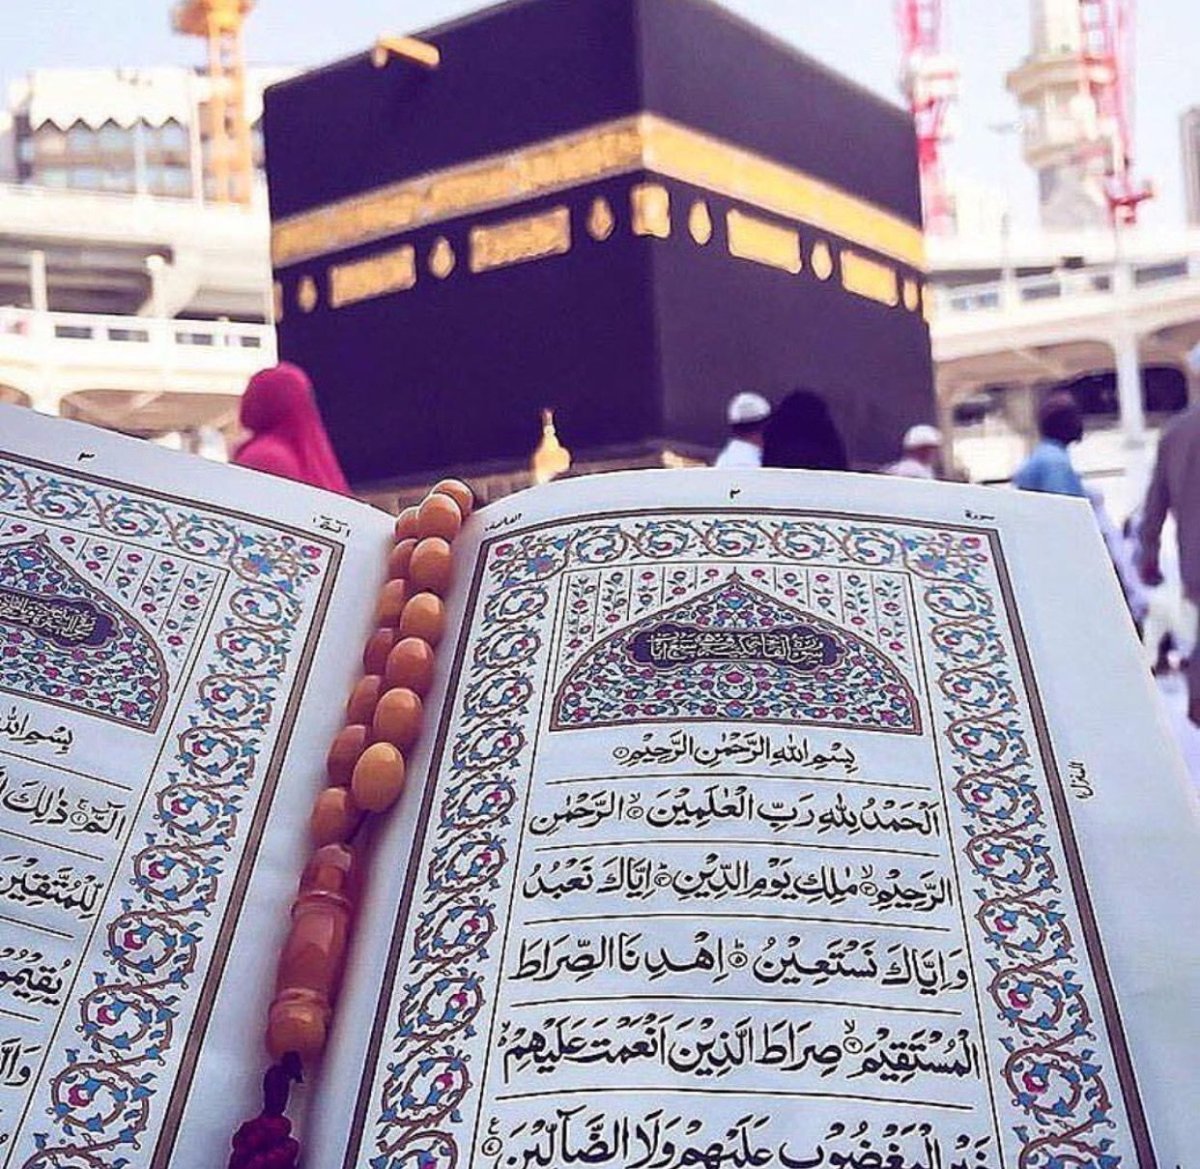 سورة ٢ الفاتحة
بِسْمِ اللهِ الرَّحْمٰنِ الرَّحِيْمِ ۝
اَلْحَمْدُ لِلّٰهِ رَبِّ الْعٰلَمِيْنَ ۝ الرَّحْمٰنِ
الرَّحِيْمِ ۝ مٰلِكِ يَوْمِ الدِّيْنِ ۝ اِيَّاكَ نَعْبُدُ
وَاِيَّاكَ نَسْتَعِيْنُ ۝ اِهْدِنَا الصِّرَاطَ
الْمُسْتَقِيْمَ ۝ صِرَاطَ الَّذِيْنَ اَنْعَمْتَ عَلَيْهِمْ
غَيْرِ الْمَغْضُوْبِ عَلَيْهِمْ وَلَا الضَّآلِّيْنَ ۝
الٓمّٓ ٣
بِسْمِ اللهِ
الٓمّٓ ۝ ذٰلِكَ
لِّلْمُتَّقِيْنَ